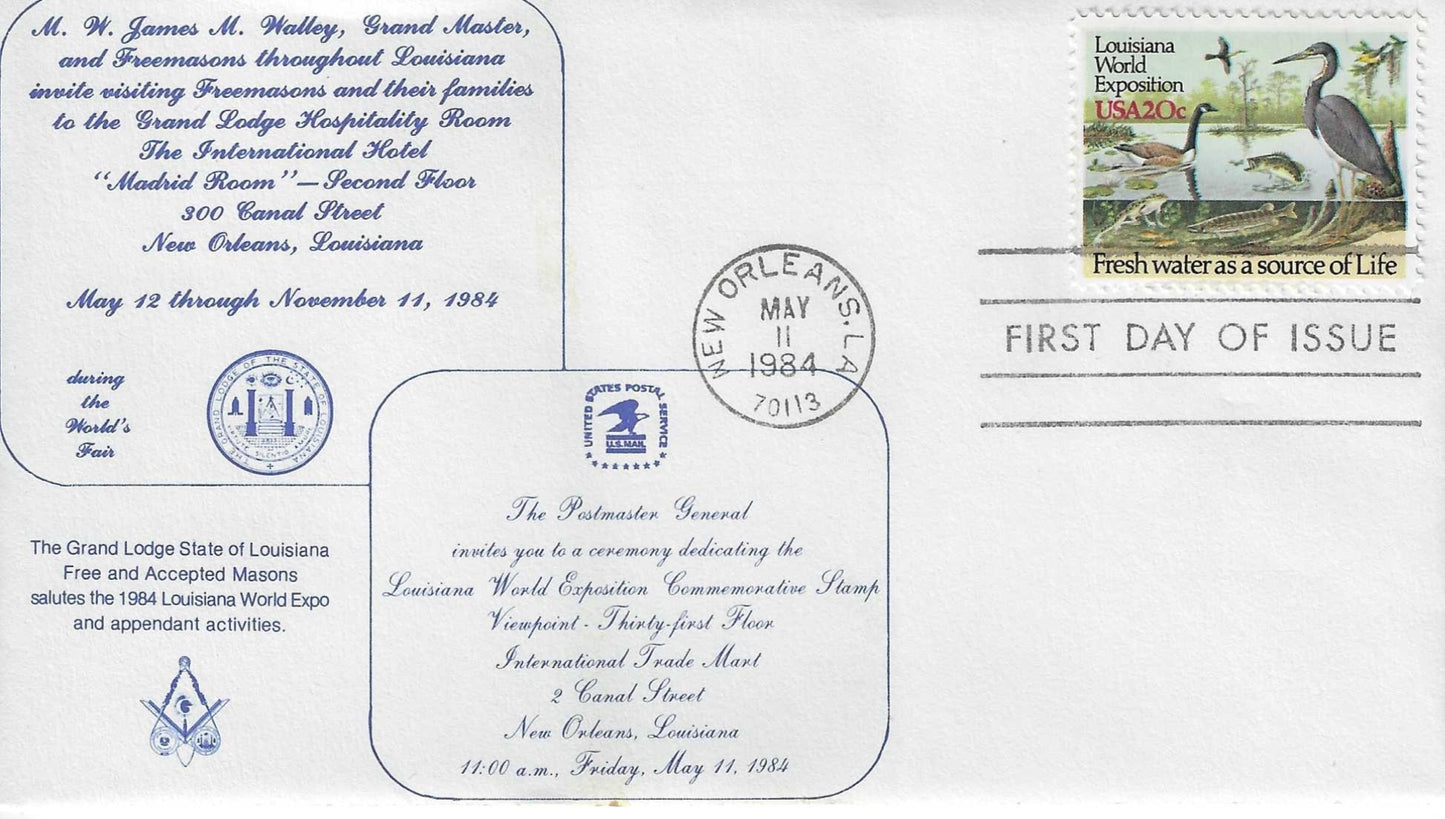 M. W. James M. Walley, Grand Master,
and Freemasons throughout Louisiana
invite visiting Freemasons and their families
to the Grand Lodge Hospitality Room
The International Hotel
"Madrid Room"—Second Floor
300 Canal Street
New Orleans, Louisiana
May 12 through November 11, 1984
during
the
World's
Fair
THE GRAND LODGE OF THE STATE OF LOUISIANA
SILENTIO
The Grand Lodge State of Louisiana
Free and Accepted Masons
salutes the 1984 Louisiana World Expo
and appendant activities.
G
UNITED STATES POSTAL SERVICE
U.S.MAIL
The Postmaster General
invites you to a ceremony dedicating the
Louisiana World Exposition Commemorative Stamp
Viewpoint - Thirty-first Floor
International Trade Mart
2 Canal Street
New Orleans, Louisiana
11:00 a.m., Friday, May 11, 1984
NEW ORLEANS, LA
MAY
11
1984
70113
Louisiana
World
Exposition
USA20c
Fresh water as a source of Life
FIRST DAY OF ISSUE